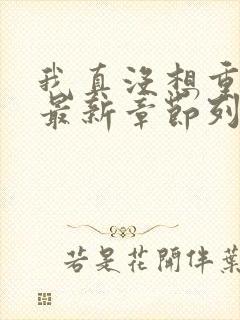 我真没想重
最新章節列
若是花開伴葉